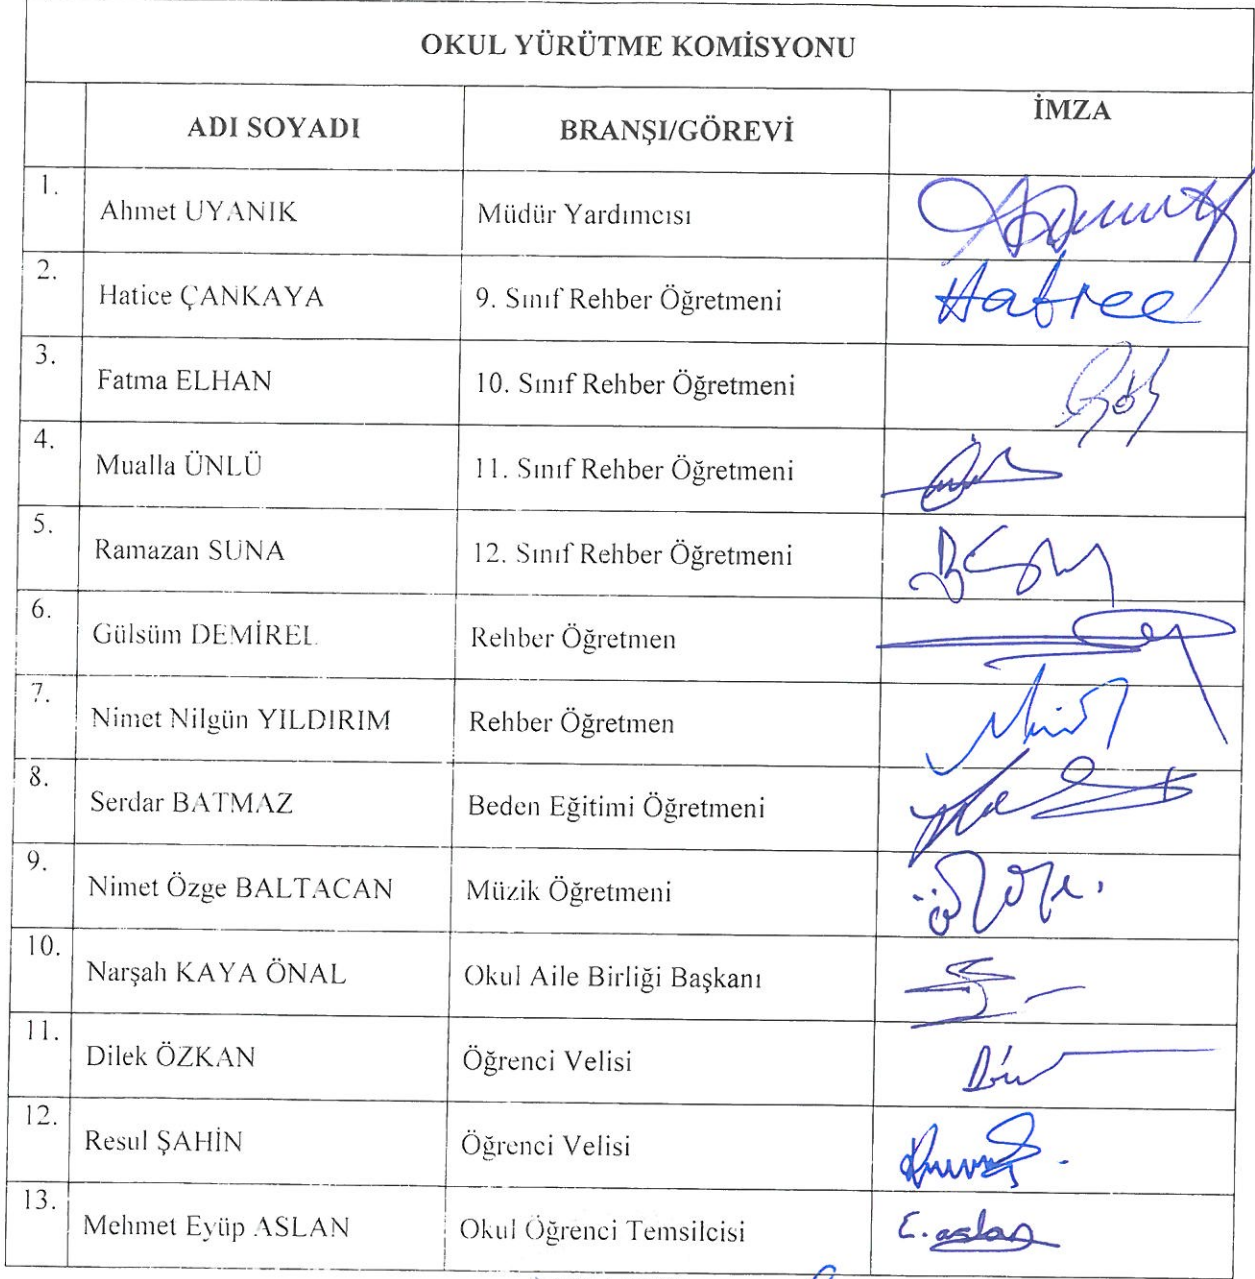 OKUL YÜRÜTME KOMİSYONU
ADI SOYADI BRANŞI/GÖREVİ İMZA
1. Ahmet UYANIK Müdür Yardımcısı
2. Hatice ÇANKAYA 9. Sınıf Rehber Öğretmeni
3. Fatma ELHAN 10. Sınıf Rehber Öğretmeni
4. Mualla ÜNLÜ 11. Sınıf Rehber Öğretmeni
5. Ramazan SUNA 12. Sınıf Rehber Öğretmeni
6. Gülsüm DEMİREL Rehber Öğretmen
7. Nimet Nilgün YILDIRIM Rehber Öğretmen
8. Serdar BATMAZ Beden Eğitimi Öğretmeni
9. Nimet Özge BALTACAN Müzik Öğretmeni
10. Narşah KAYA ÖNAL Okul Aile Birliği Başkanı
11. Dilek ÖZKAN Öğrenci Velisi
12. Resul ŞAHİN Öğrenci Velisi
13. Mehmet Eyüp ASLAN Okul Öğrenci Temsilcisi E. aslan